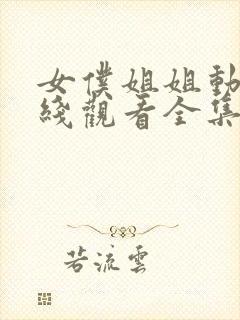 女僕姐姐動
綫觀看全集
若流雲